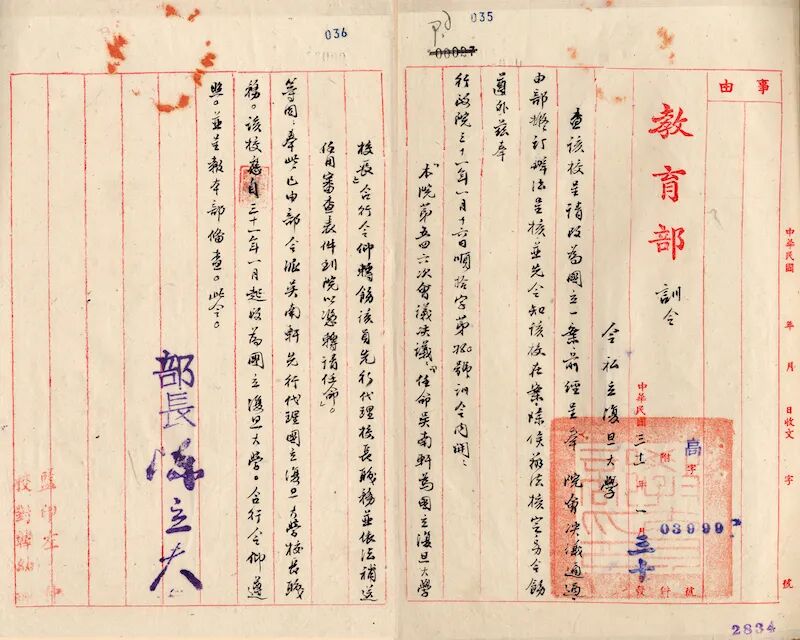 035
00027
事由
中華民國 年 月 日收文 字 號
教育部 訓令
中華民國三十一年一月三十
附
高字 03999 號
令私立復旦大學
查該校呈請改為國立一案前經呈奉 院會決議通過,
由部擬訂辦法呈核並先令知該校在案,除俟辦法核定另令飭
遵外茲奉
行政院三十一年一月十六日順拾字第 號訓令內開:
「本院第五四六次會議決議:『任命吳南軒為國立復旦大學
2834
036
校長』合行令仰轉飭該員先行代理校長職務並依法補送
任用審查表件到院以憑轉請任命」。
等因,奉此,已由部令派吳南軒先行代理國立復旦大學校長職
務。該校應自三十一年一月起改為國立復旦大學。合行令仰遵
照。並呈報本部備查。此令。
部長 陳立夫
監印
校對